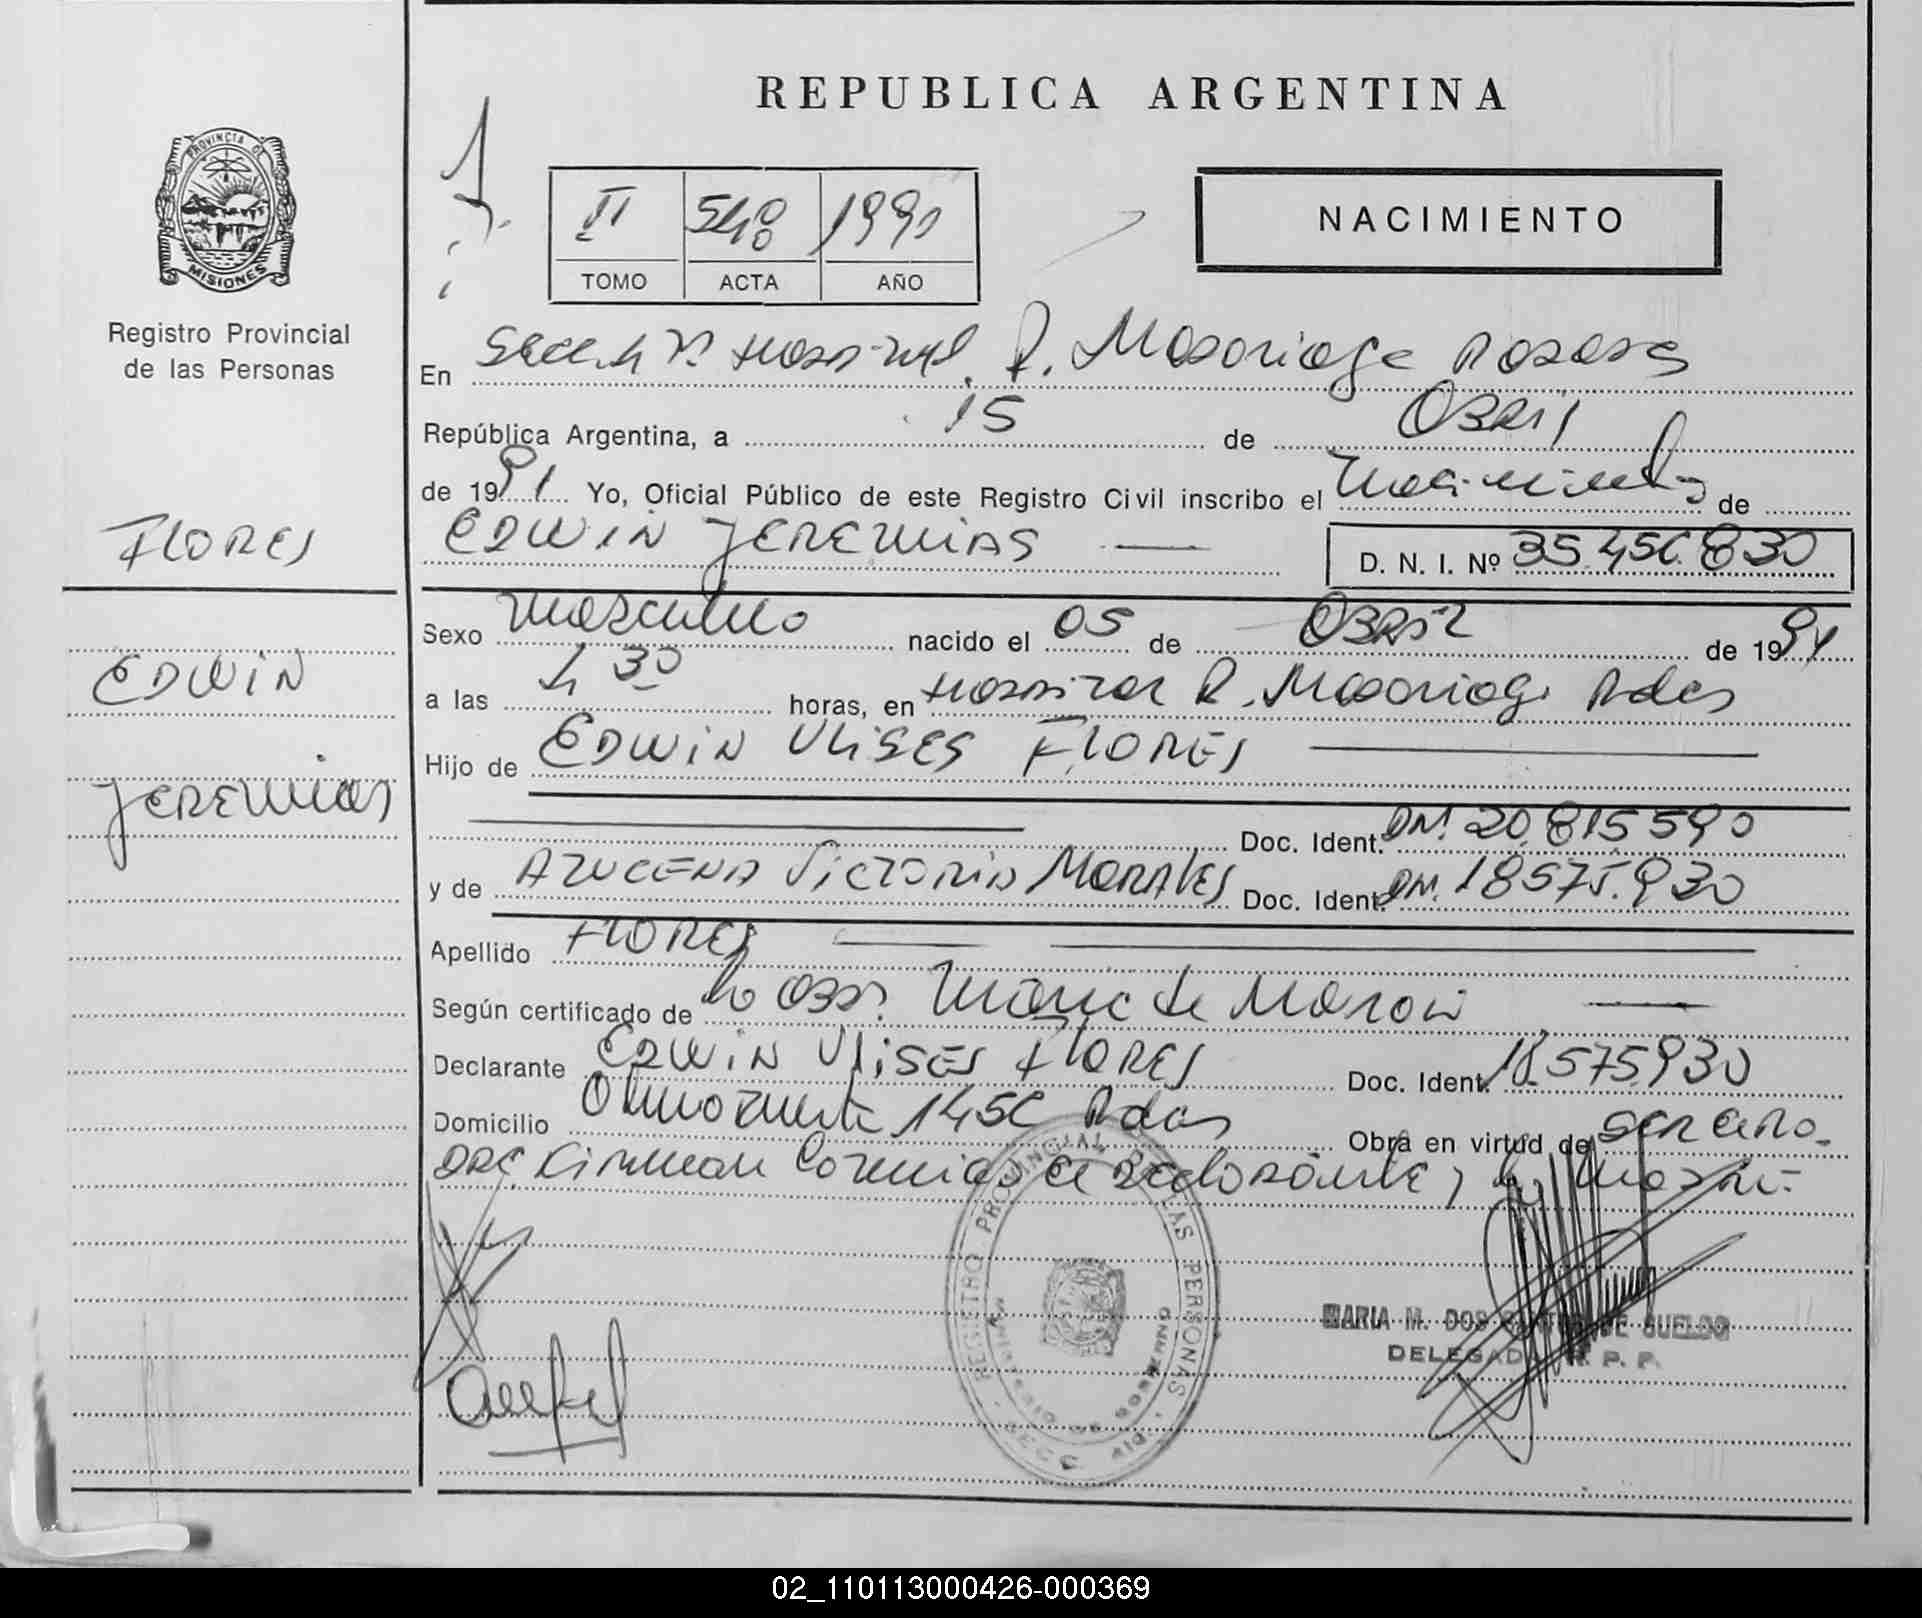 REPUBLICA ARGENTINA
PROVINCIA DE
MISIONES
Registro Provincial
de las Personas
II 548 1991
TOMO ACTA AÑO
NACIMIENTO
En Hospital R. Madariaga Posadas
República Argentina, a 15 de Abril
de 1991 Yo, Oficial Público de este Registro Civil inscribo el Nacimiento de
FLORES
EDWIN JEREMIAS D. N. I. Nº
EDWIN
JEREMIAS
Sexo Masculino nacido el 05 de Abril de 1991
a las 4 30 horas, en Hospital R. Madariaga Pdas
Hijo de EDWIN ULISES FLORES
Doc. Ident. DNI. 20.815.590
y de AZUCENA VICTORIA MORALES Doc. Ident. DNI. 18.575.930
Apellido FLORES
Según certificado de la Obst.
Declarante EDWIN ULISES FLORES Doc. Ident. 18.575.930
Domicilio Pdas Obra en virtud de ser el pa-
dre. Firman el declarante y la madre.
REGISTRO PROVINCIAL DE LAS PERSONAS
MINISTERIO DE GOBIERNO
MARIA M. DOS SANTOS DE
DELEGADA R. P. P.
02_110113000426-000369